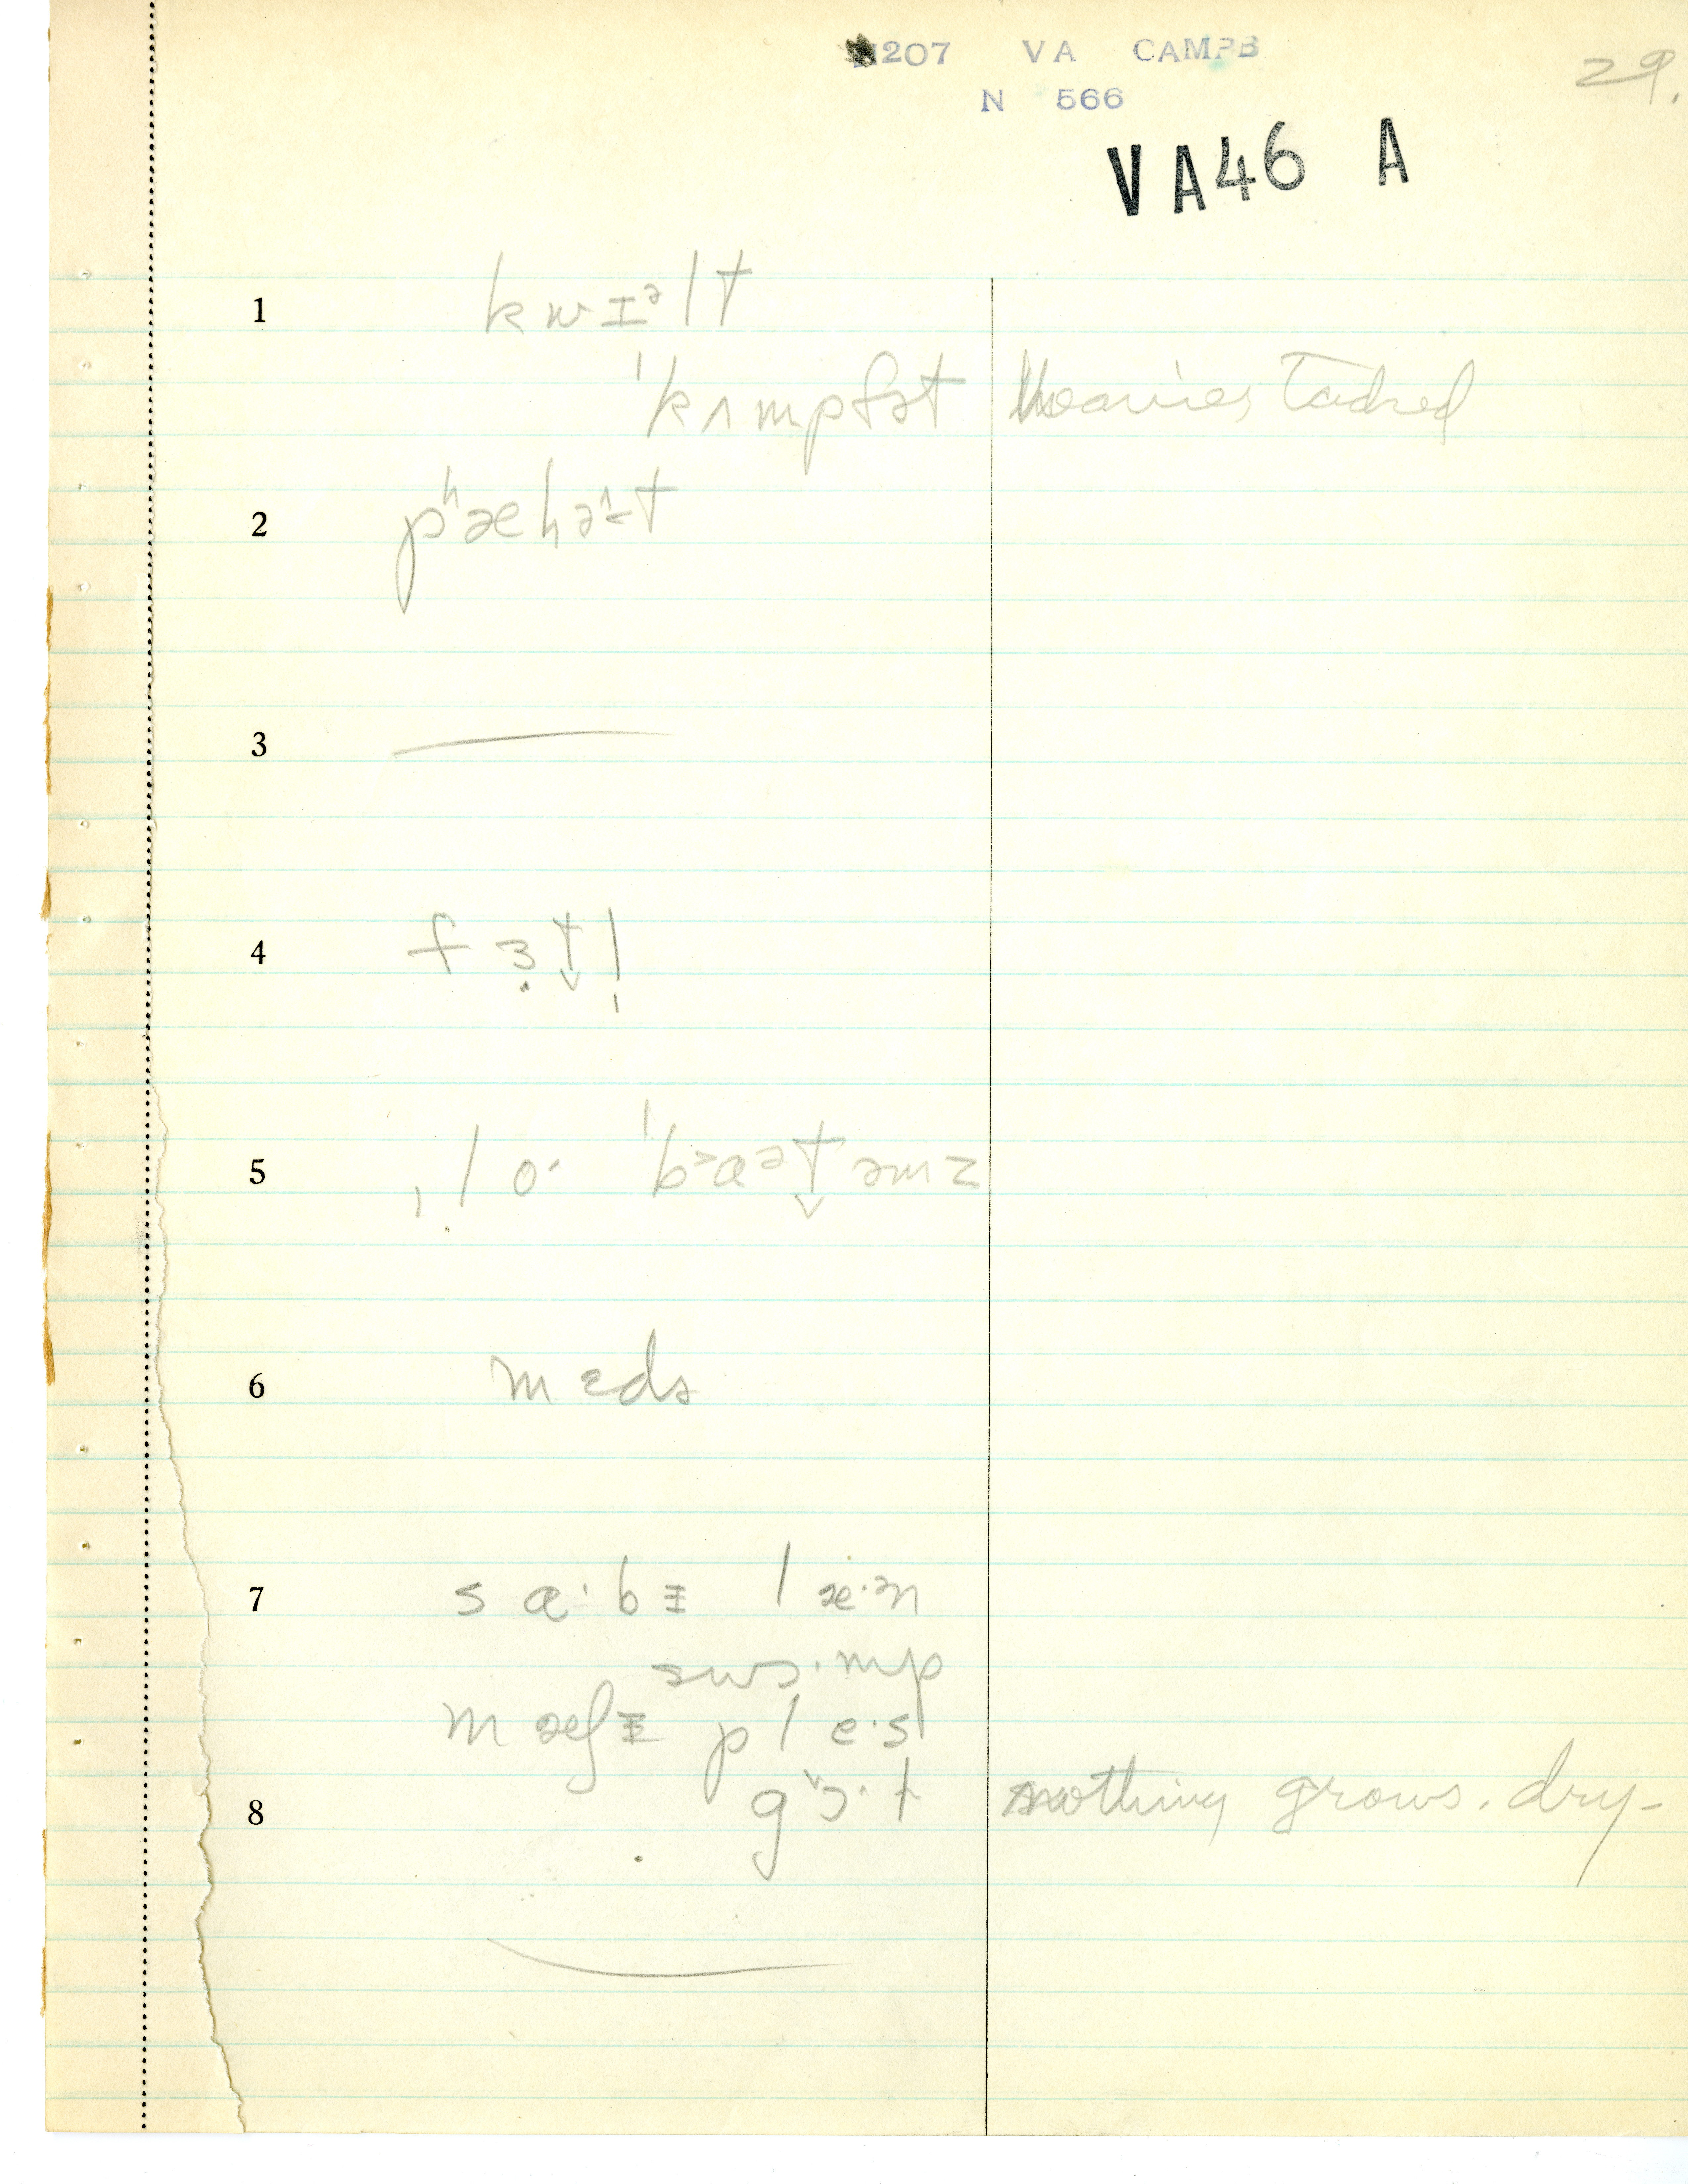 207 VA CAMPB
N 566
29.
VA46 A
1 kwɪᵊlt
ˈkʌmpfət heavier, tacked
2 pʰæhəᶺ-t
3
4 fɜ̣t̬l̩
5 ˌlo· ˈbɒət̬əmz
6 mɛdə
7 sa·bɪ læ·n
swɔ·mp
mæʃɪ ple·s
8 gɔ·t nothing grows. dry-